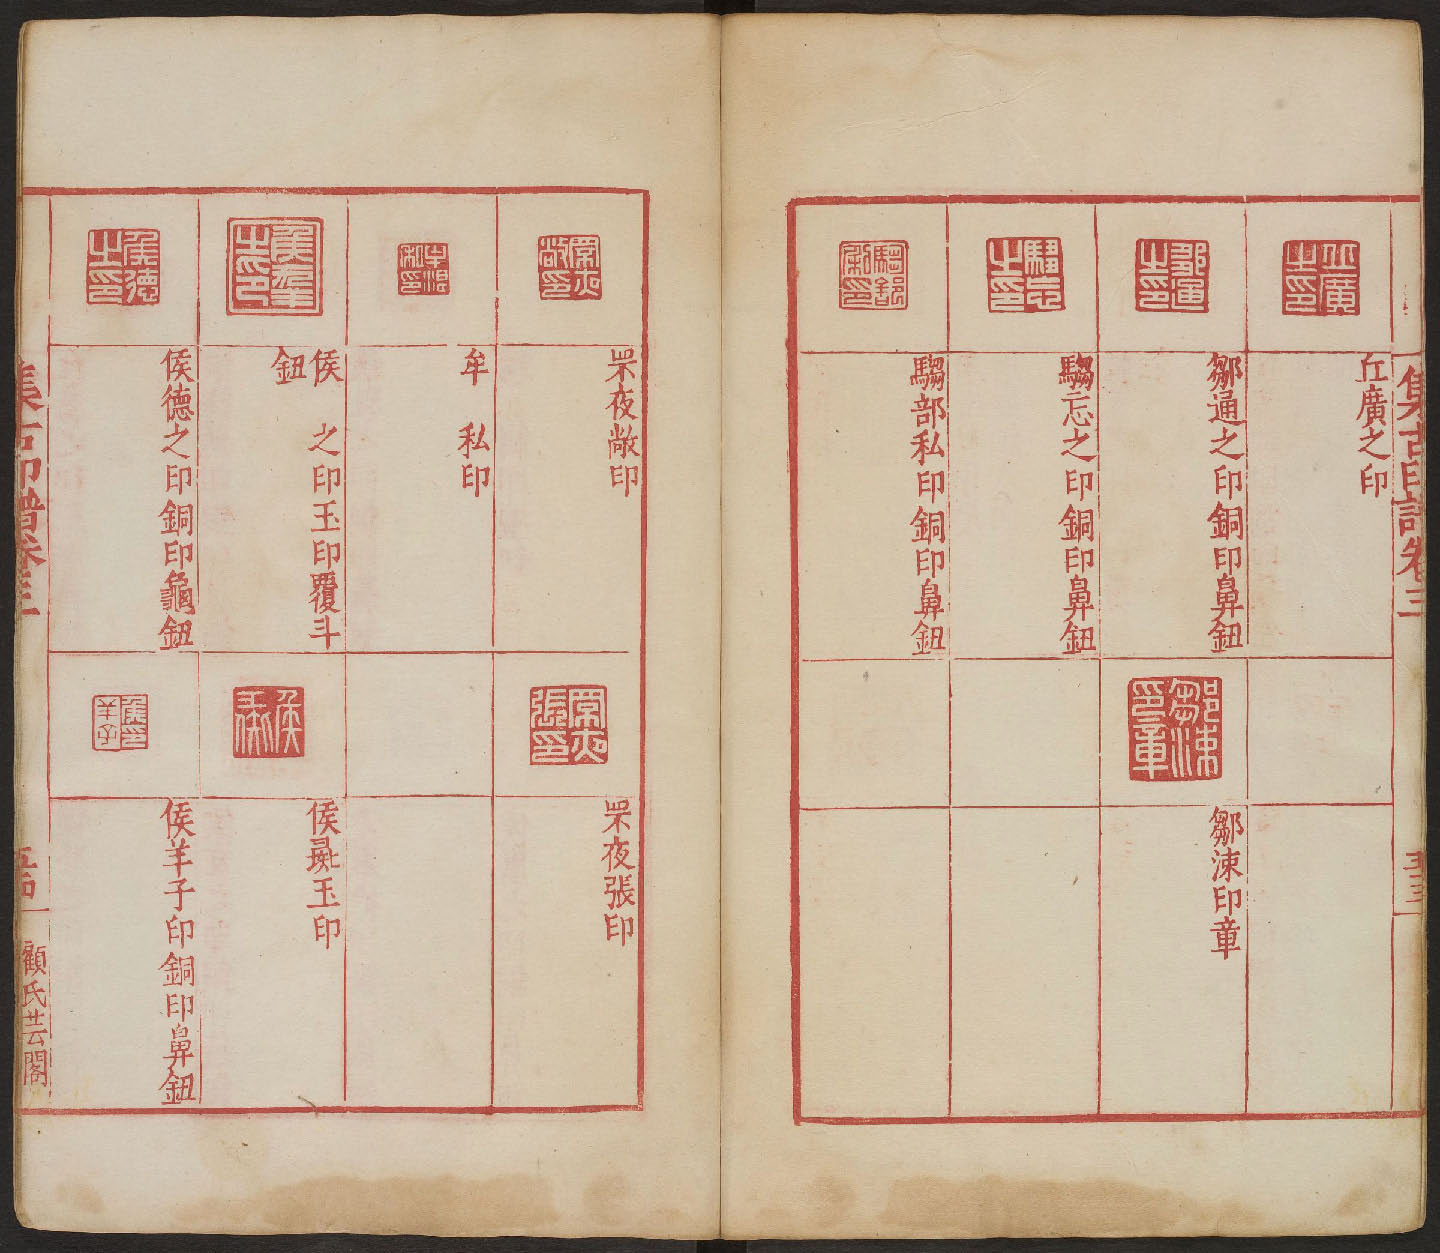 集古印譜卷三
五十三
丘廣之印
鄒通之印銅印鼻鈕
騶忘之印銅印鼻鈕
騶部私印銅印鼻鈕
鄒涑印章
罘夜敞印
牟 私印
侯 之印玉印覆斗
鈕
侯德之印銅印龜鈕
罘夜張印
侯 玉印
侯羊子印銅印鼻鈕
集古印譜卷三
顧氏芸閣